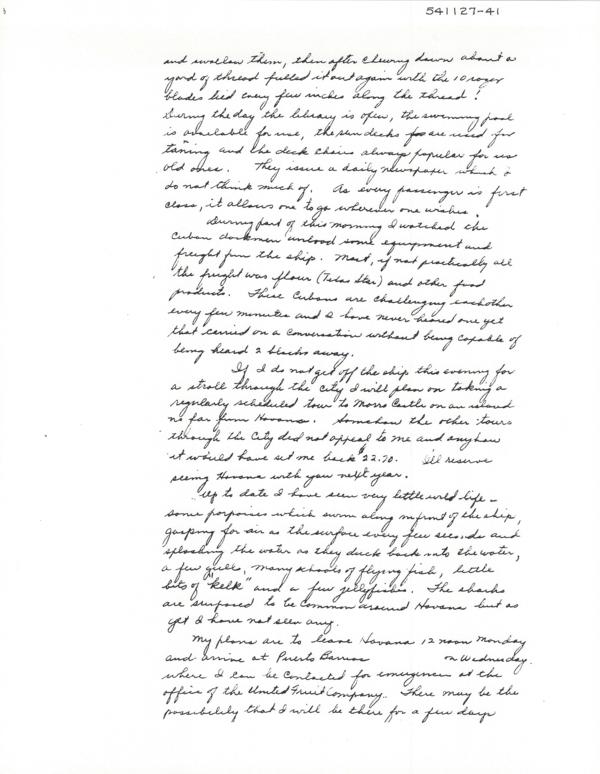 541127-41
and swallow them, then after chewing down about a
yard of thread pulled it out again with the 10 razor
blades tied every few inches along the thread!
During the day the library is open, the swimming pool
is available for use, the sun decks are used for
tanning and the deck chairs always popular for us
old ones. They issue a daily newspaper which I
do not think much of. As every passenger is first
class, it allows one to go wherever one wishes.
During part of this morning I watched the
Cuban dockmen unload some equipment and
freight from the ship. Most, if not practically all
the freight was flour (Texas Star) and other food
products. These Cubans are challenging eachother
every few minutes and I have never heard one yet
that carried on a conversation without being capable of
being heard 2 blocks away.
If I do not get off the ship this evening for
a stroll through the city I will plan on taking a
regularly scheduled tour to Morro Castle on an island
no far from Havana. Somehow the other tours
through the City did not appeal to me and anyhow
it would have set me back $22.70. I'll reserve
seeing Havana with you next year.
Up to date I have seen very little wild life -
some porpoises which swim along in front of the ship,
gasping for air as the surface every few seconds and
splashing the water as they duck back into the water,
a few gulls, many schools of flying fish, little
bits of "kelk" and a few jellyfishes. The sharks
are supposed to be common around Havana but as
yet I have not seen any.
My plans are to leave Havana 12 noon Monday
and arrive at Puerto Barrios on Wednesday.
where I can be contacted for emergencies at the
office of the United Fruit Company. There may be the
possibility that I will be there for a few days